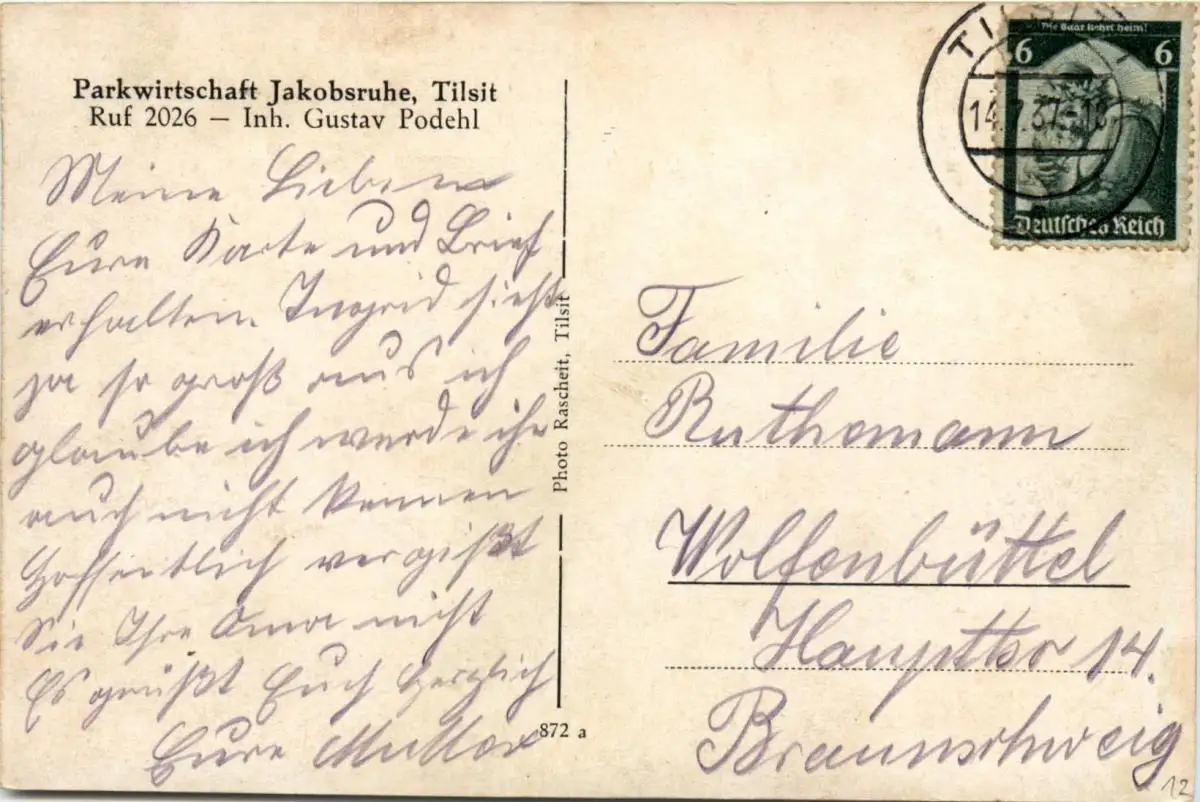 Parkwirtschaft Jakobsruhe, Tilsit
Ruf 2026 – Inh. Gustav Podehl
Meine Lieben
Eure Karte und Brief
erhalten. Ingrid sieht
ja so groß aus ich
glaube ich werde ihr
auch nicht kennen
Hoffentlich vergißt
Sie Ihre Oma nicht
Es grüßt Euch herzlich
Eure Mutter
Photo Rascheit, Tilsit
872 a
TILSIT
14.7.37-18
Die Saar kehrt heim!
6 6
Deutsches Reich
Familie
Ruthemann
Wolfenbüttel
Haupttor 14.
Braunschweig
12